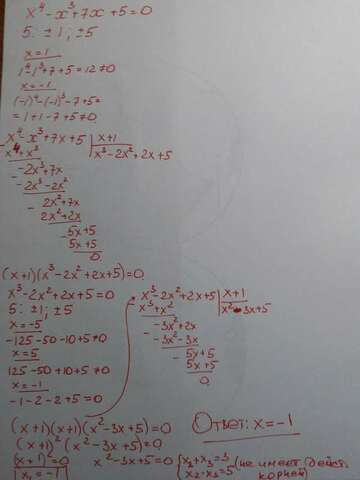 x⁴-x³+7x+5=0
5: ±1; ±5
x=1
1⁴-1³+7+5=12≠0
x=-1
(-1)⁴-(-1)³-7+5=
=1+1-7+5≠0
-x⁴-x³+7x+5 | x+1
x⁴+x³ | x³-2x²+2x+5
-2x³+7x
-2x³-2x²
- 2x²+7x
2x²+2x
-5x+5
5x+5
0
(x+1)(x³-2x²+2x+5)=0
x³-2x²+2x+5=0
5: ±1; ±5
x=-5
-125-50-10+5≠0
x=5
125-50+10+5≠0
x=-1
-1-2-2+5=0
x³-2x²+2x+5 | x+1
x³+x² | x²-3x+5
-3x²+2x
-3x²-3x
- 5x+5
5x+5
0
(x+1)(x+1)(x²-3x+5)=0
(x+1)²(x²-3x+5)=0
(x+1)²=0
x₁=-1
x²-3x+5=0 { x₂+x₃=3
x₂·x₃=5 (не имеет действ. корней)
Ответ: x=-1